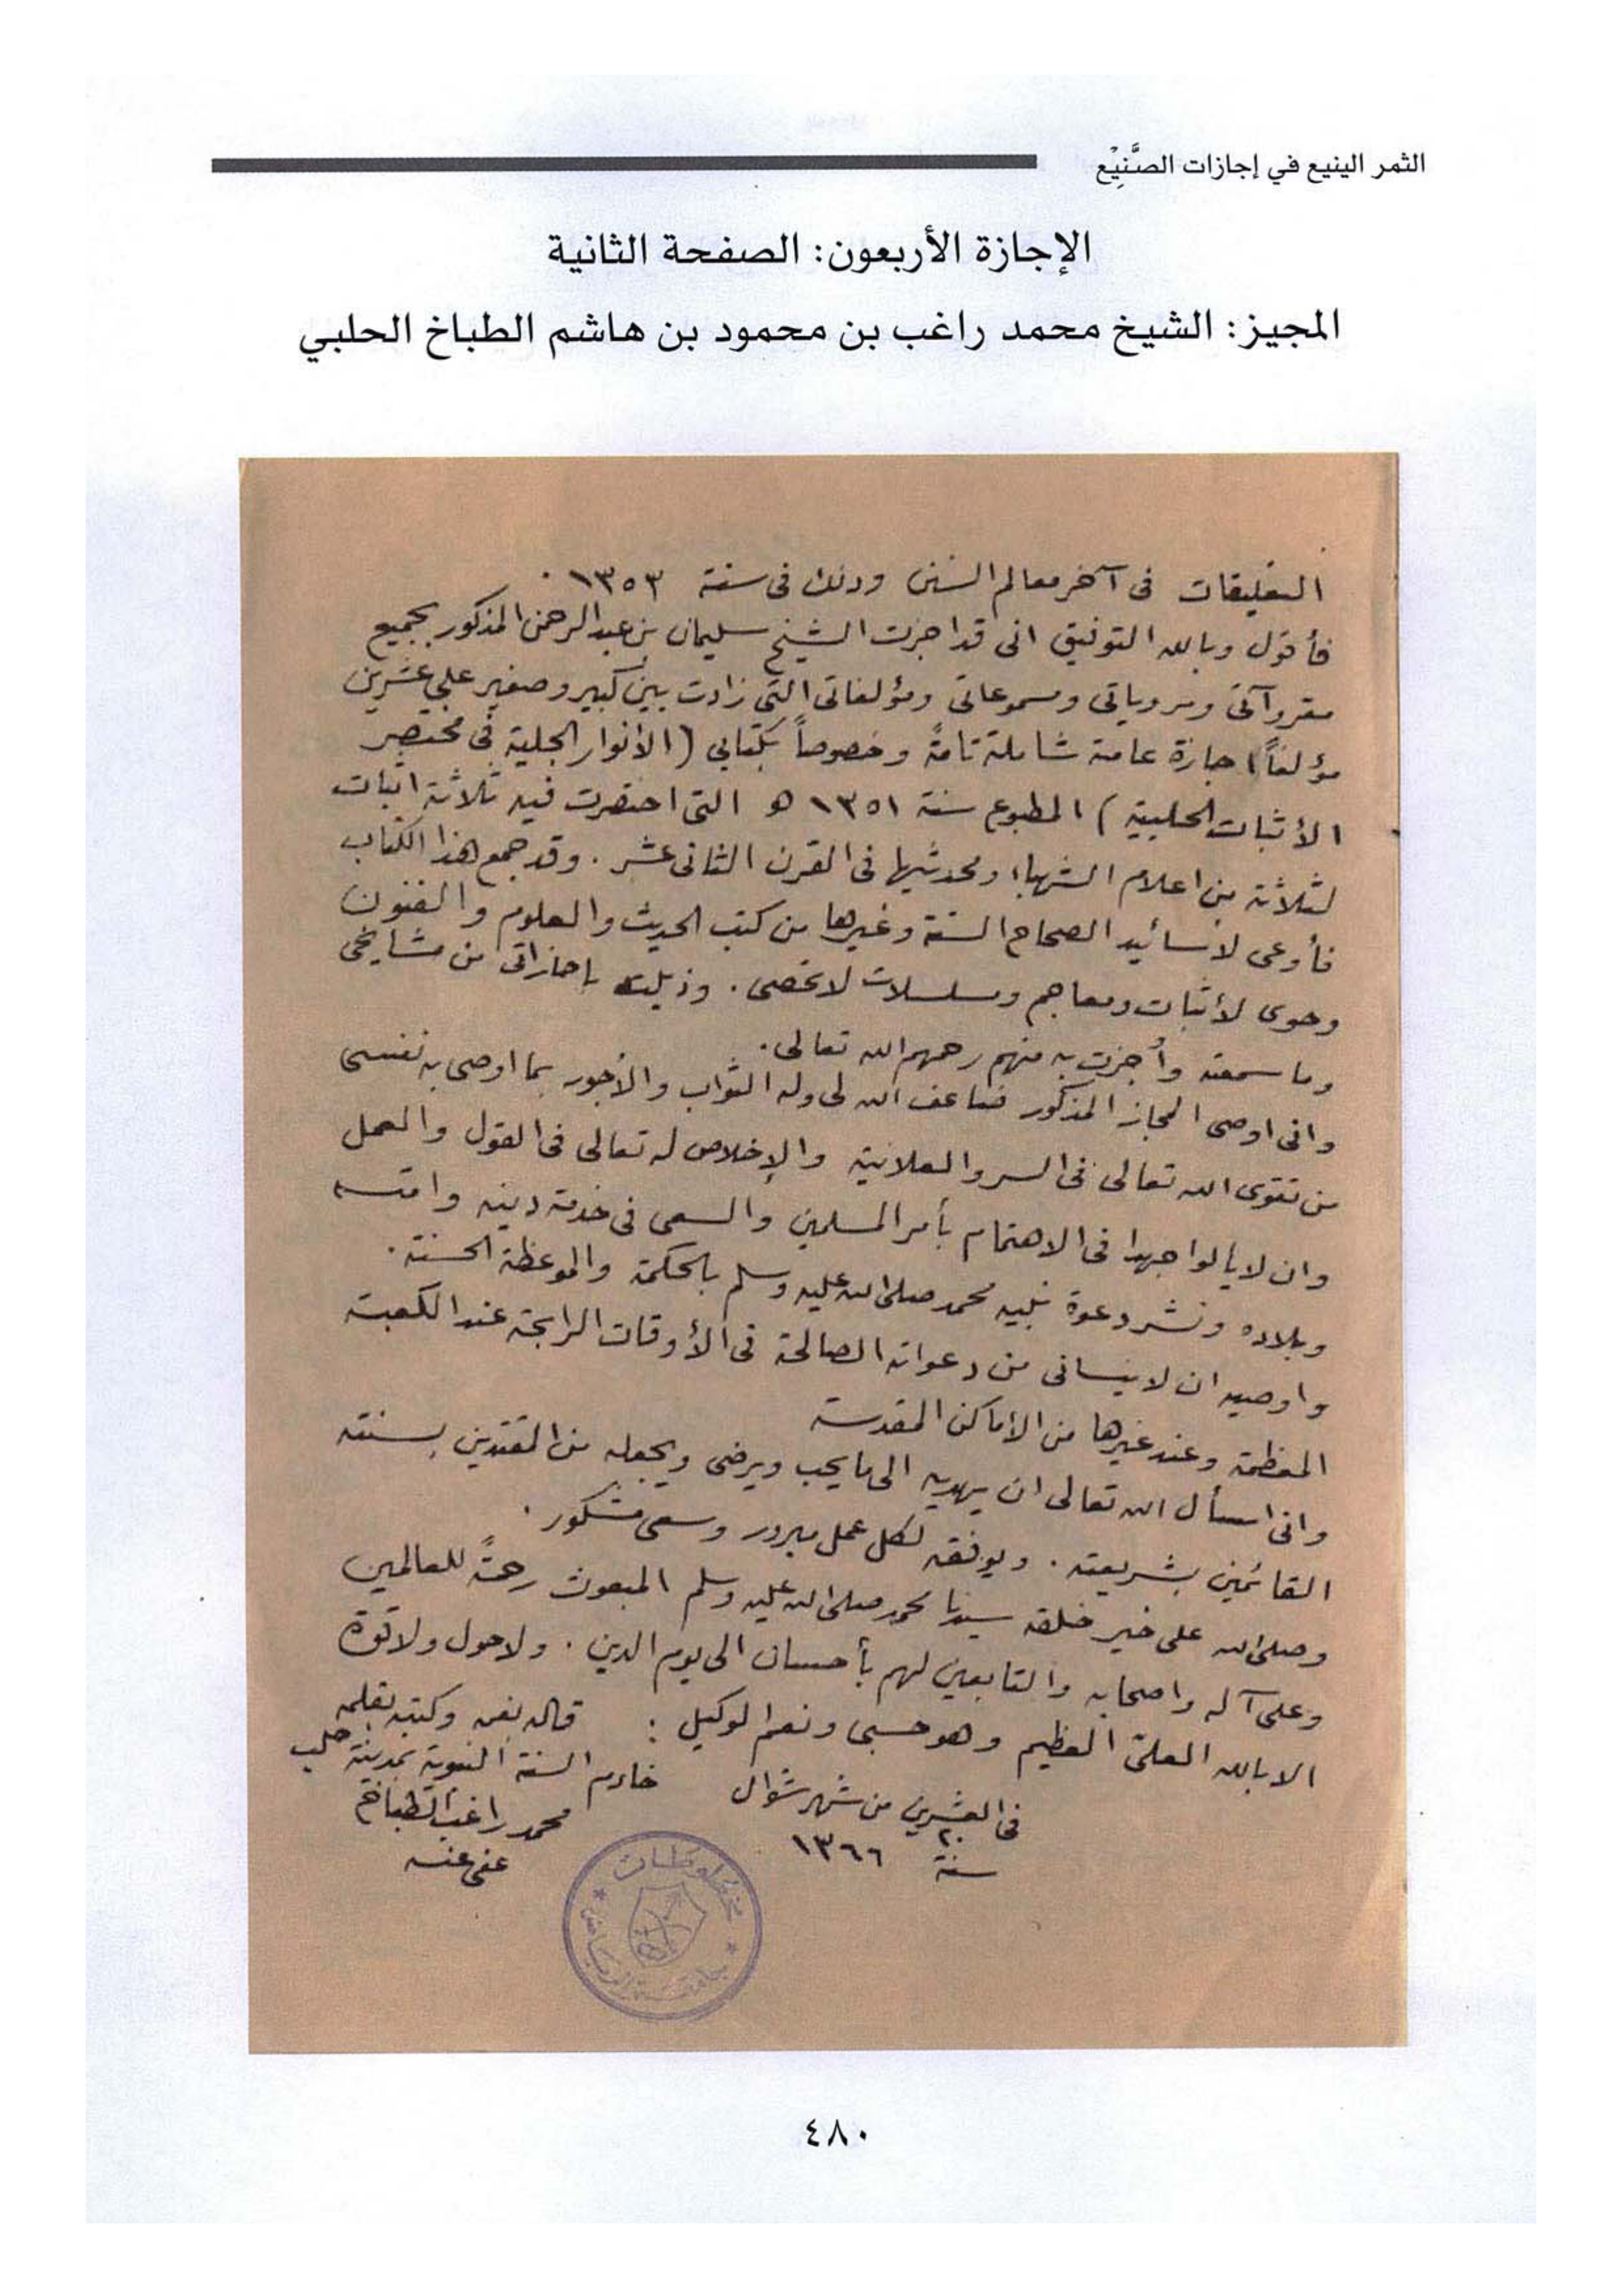 الثمر الينيع في إجازات الصَّنِيْع
الإجازة الأربعون: الصفحة الثانية
المجيز: الشيخ محمد راغب بن محمود بن هاشم الطباخ الحلبي
التعليقات فى آخر معالم السنن وذلك فى سنة ١٣٥٣ .
فأقول وبالله التوفيق انى قد اجزت الشيخ سليمان بن عبد الرحمن المذكور بجميع
مقروآتى ومروياتى ومسموعاتى ومؤلفاتى التى زادت بين كبير وصغير على عشرين
مؤلفاً اجازة عامة شاملة تامة وخصوصاً بكتابى (الأنوار الجلية فى مختصر
الأثبات الحلبية) المطبوع سنة ١٣٥١ هـ التى اختصرت فيه ثلاثة اثبات
لثلاثة من اعلام الشهباء ومحدثيها فى القرن الثانى عشر . وقد جمع هذا الكتاب
فأوعى لأسانيد الصحاح الستة وغيرها من كتب الحديث والعلوم والفنون
وحوى لأثبات ومعاجم ومسلسلات لا تحصى . وذيلته بإجازاتى من مشايخى
وما سمعته وأجزت به منهم رحمهم الله تعالى .
وانى اوصى المجاز المذكور ضاعف الله لى وله الثواب والأجور بما اوصى به نفسى
من تقوى الله تعالى فى السر والعلانية والإخلاص له تعالى فى القول والعمل
وان لا يألوا جهدا فى الاهتمام بأمر المسلمين والسعى فى خدمة دينه وامته
وبلاده ونشر دعوة نبيه محمد صلى الله عليه وسلم بالحكمة والموعظة الحسنة .
واوصيه ان لا ينسانى من دعواته الصالحة فى الأوقات الرابحة عند الكعبة
المعظمة وعند غيرها من الاماكن المقدسة
وانى اسأل الله تعالى ان يهديه الى ما يحب ويرضى ويجعله من المقتدين بسنته
القائمين بشريعته . ويوفقه لكل عمل مبرور وسعى مشكور .
وصلى الله على خير خلقه سيدنا محمد صلى الله عليه وسلم المبعوث رحمةً للعالمين
وعلى آله واصحابه والتابعين لهم بأحسان الى يوم الدين . ولا حول ولا قوة
الا بالله العلىّ العظيم وهو حسبى ونعم الوكيل : قاله بفمه وكتبه بقلمه
خادم السنة النبوية بمدينة حلب
فى العشرين من شهر شوال
محمد راغب الطباخ
٢٠
سنة ١٣٦٦
عفى عنه
مخطوطات
جامعة الرياض
٤٨٠